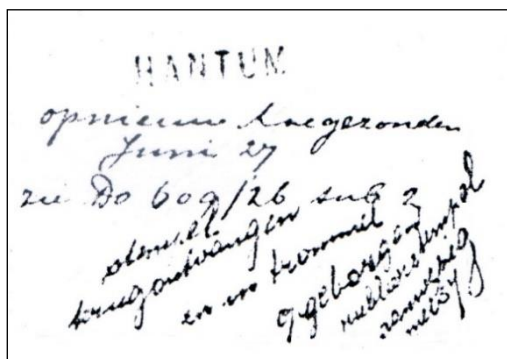 HANTUM
opnieuw toegezonden
Juni 27
zie Do 609/26 sub 2
stempel
terugontvangen
en in trommel
opgeborgen
rubberstempel
aanwezig